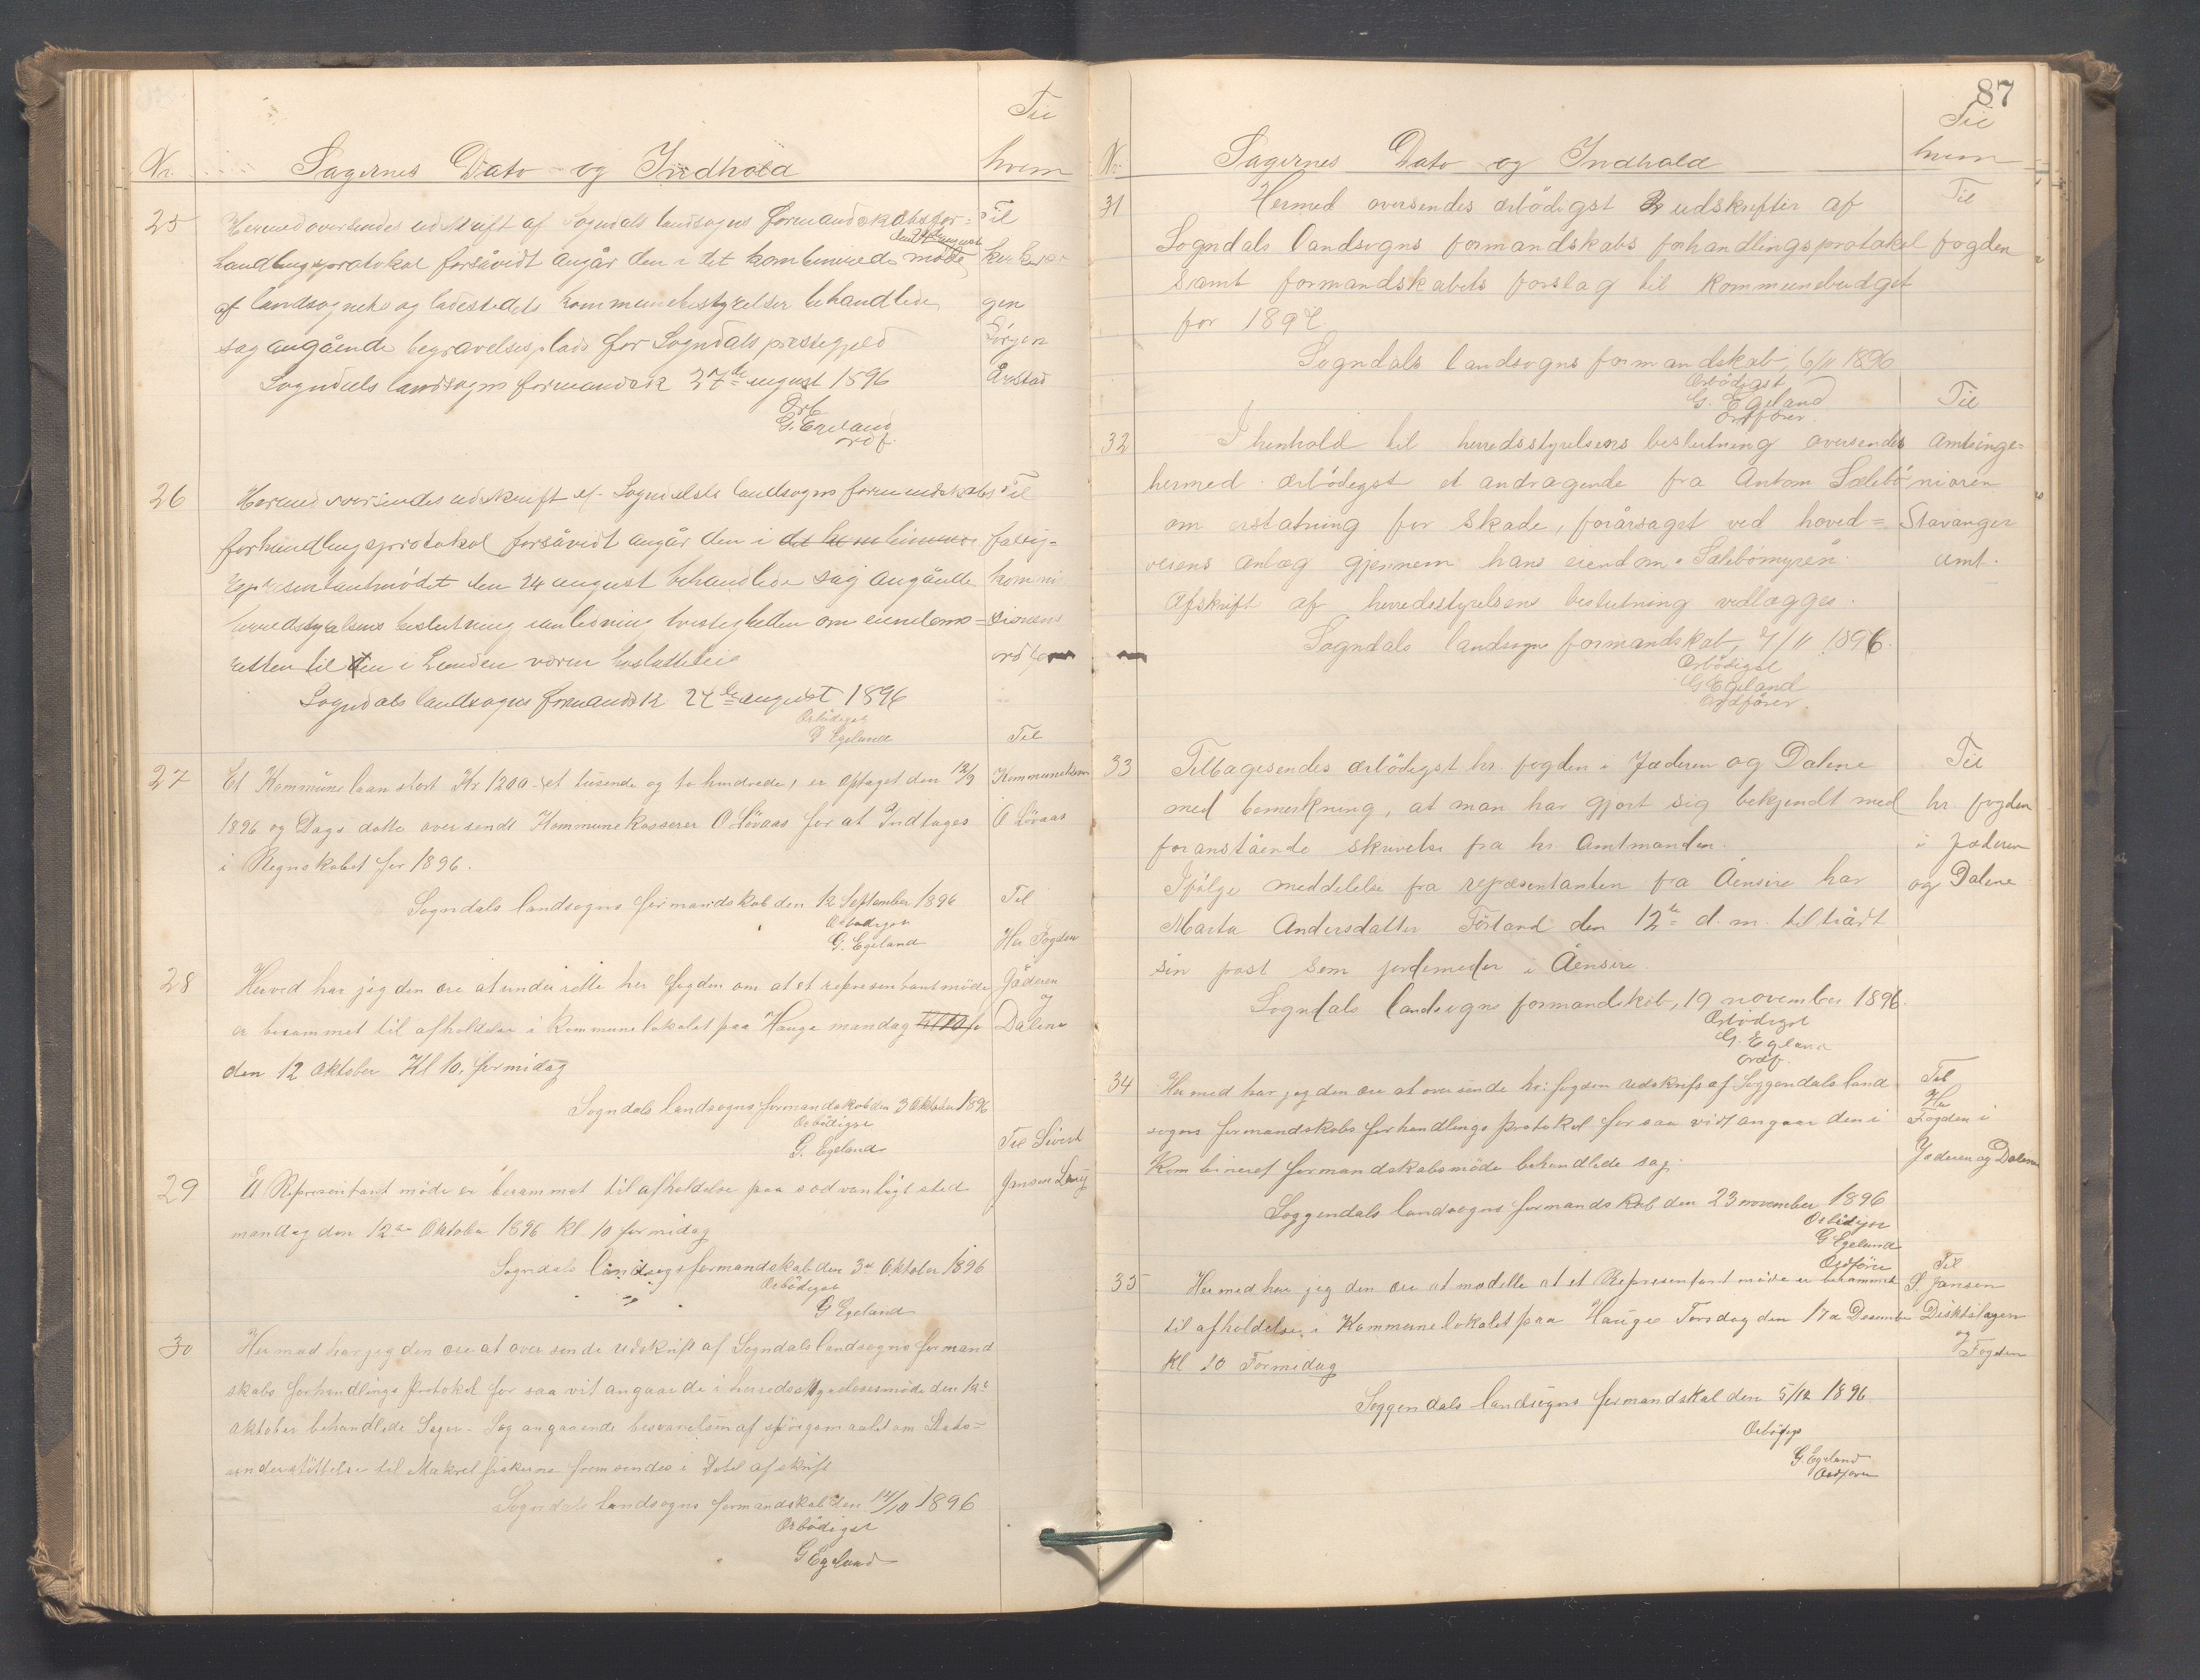 Til
Nr. Sagernes Dato og Indhold hvem
25 Hermed oversendes udskrift af Sogndals landsogns formandskabsfor= Til
den 24 august
handlingsprotokol forsåvidt angår den i det kombinerede møde kirkevær
af landsognets og ladestedets kommunebestyrelser behandlede gen
sag angående begravelsesplads for Sogndals prestegjeld Sørgen
Sogndals landsogns formandsk 27de august 1896 Årstad
Ærb
G. Egeland
ordf.
26 Hermed oversendes udskrift af Sogndals landsogns formandskabs Til
forhandlingsprotokol forsåvidt angår den i fattig-
representantmødet den 24 august behandlede sag angående kommi
herredsstyrelsens beslutning anledning tvistigheden om eiendoms= sionens
retten til den i Lunden værende husløttelei ordf
Sogndals landsogns formandsk 24de august 1896
Ærbødigst
G Egeland
Til
27 Et Kommunelaan stort Kr 1200 - et tusende og to hundrede, er optaget den 12/9 Kommunekass
1896 og Dags datto oversendt Kommunekasserer O Løvaas for at Indtages O Løvaas
i Regnskabet for 1896.
Sogndals landsogns formandskab den 12 September 1896 Til
Ærbødigst
G. Egeland Her Fogden
28 Herved har jeg den ære at underrette her fogden om at et representantmøde Jæderen
og
er berammet til afholdelse i Kommunelokalet paa Hauge mandag Dalene
den 12 Oktober Kl 10. formidag
Sogndals landsogns formandskab den 3 Oktober 1896
Ærbødigst
G. Egeland Til Sivert
29 Et Representant møde er berammet til afholdelse paa sedvanligt sted Jansen Løvig
mandag den 12te Oktober 1896 kl 10 formidag
Sogndals landsogs formandskab den 3de Oktober 1896
Ærbødigst
G Egeland
30 Hermed har jeg den ære at over sende Udskrift af Sogndals landsogns formand
skabs forhandlings Protokol for saa vit angaaende i herredsstyrelsesmøde den 12te
oktober behandlede Sager - Sag angaaende besvarelsen af spørgsmaalet om Stats=
understøttelse til Makrelfiskerne fremsendes i Dobel afskrift
Sogndals landsogns formandskab den 14/10 1896
Ærbødigst
G Egeland
87
Til
Nr. Sagernes Dato og Indhold hvem
31 Hermed oversendes ærbødigst 2 udskrifter af Til
Sogndals landsogns formandskabs forhandlingsprotokol fogden
samt formandskabets forslag til kommunebudget
for 1897.
Sogndals landsogns formandskab, 6/11 1896
Ærbødigst
G. Egeland
Ordfører. Til
32 I henhold til herredsstyrelsens beslutning oversendes amtsinge=
hermed ærbødigst et andragende fra Anton Sælebø niøren
om erstatning for skade, forårsaget ved hoved= Stavanger
veiens anlæg gjennem hans eiendom „Sælebømyren“. amt.
Afskrift af herredsstyrelsens beslutning vedlægges.
Sogndals landsogns formandskab, 7/11 1896.
Ærbødigst
G Egeland
Ordfører.
33 Tilbagesendes ærbødigst hr. fogden i Jæderen og Dalene Til
med bemerkning, at man har gjort sig bekjendt med hr. fogden
foranstående skrivelse fra hr. Amtmanden. i Jæderen
Ifølge meddelelse fra repræsentanten fra Åensire har og Dalene
Marta Andersdatter Førland den 12te d. m. tiltrådt
sin post som jordemoder i Åensire.
Sogndals landsogns formandskab, 19 november 1896.
Ærbødigst
G. Egeland
ordf.
34 Hermed har jeg den ære at oversende hr: fogden Udskrift af Soggendals land Til
Her
sogns formandskabs forhandlings protokol for saa vidt angaar den i Fogden i
Kombineret formandskabsmøde behandlede sag. Jæderen og Dalene
Soggendals landsogns formandskab den 23 november 1896
Ærbødigst
G Egeland
Ordfører
35 Hermed har jeg den ære at medelle at et Representant møde er berammet Til S. Jansen
til afholdelse i Kommunelokalet paa Hauge Torsdag den 17de Desember Disktslægen
og
kl 10 Formidag Fogden
Soggendals landsogns formandskab den 5/12 1896
Ærbødigs
G. Egeland
Ordfører